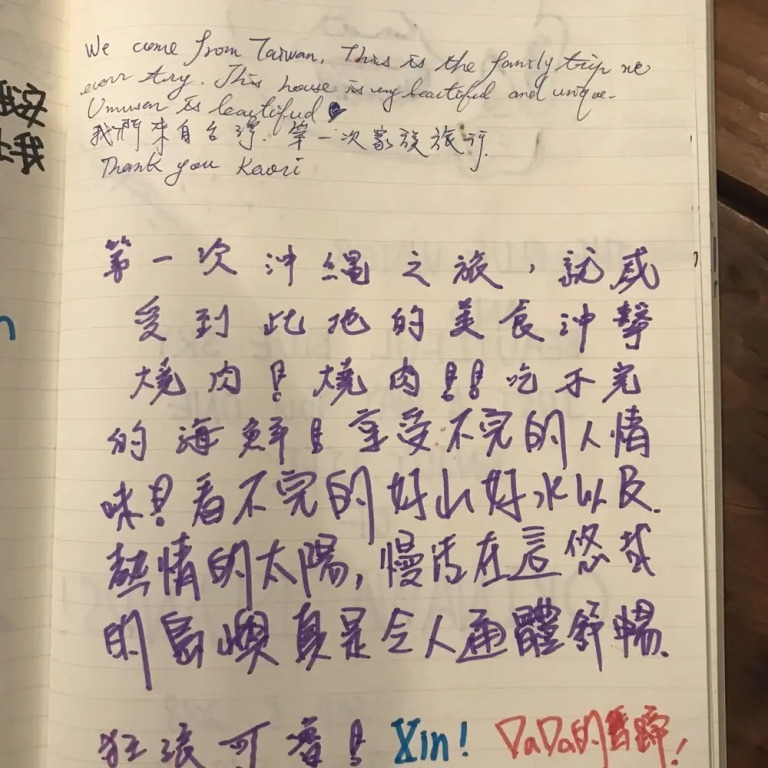 We come from Taiwan. This is the family trip we
ever try. This house is very beautiful and unique.
Umusun is beautiful
我們來自台灣. 第一次家族旅行.
Thank you Kaori
第一次沖繩之旅，就感
受到此地的美食沖擊
燒肉！燒肉！！吃不完
的海鮮！！享受不完的人情
味！看不完的好山好水以及.
熱情的太陽, 慢活在這悠哉
的島嶼真是令人通體舒暢.
可愛！ Xin！ DaDa的